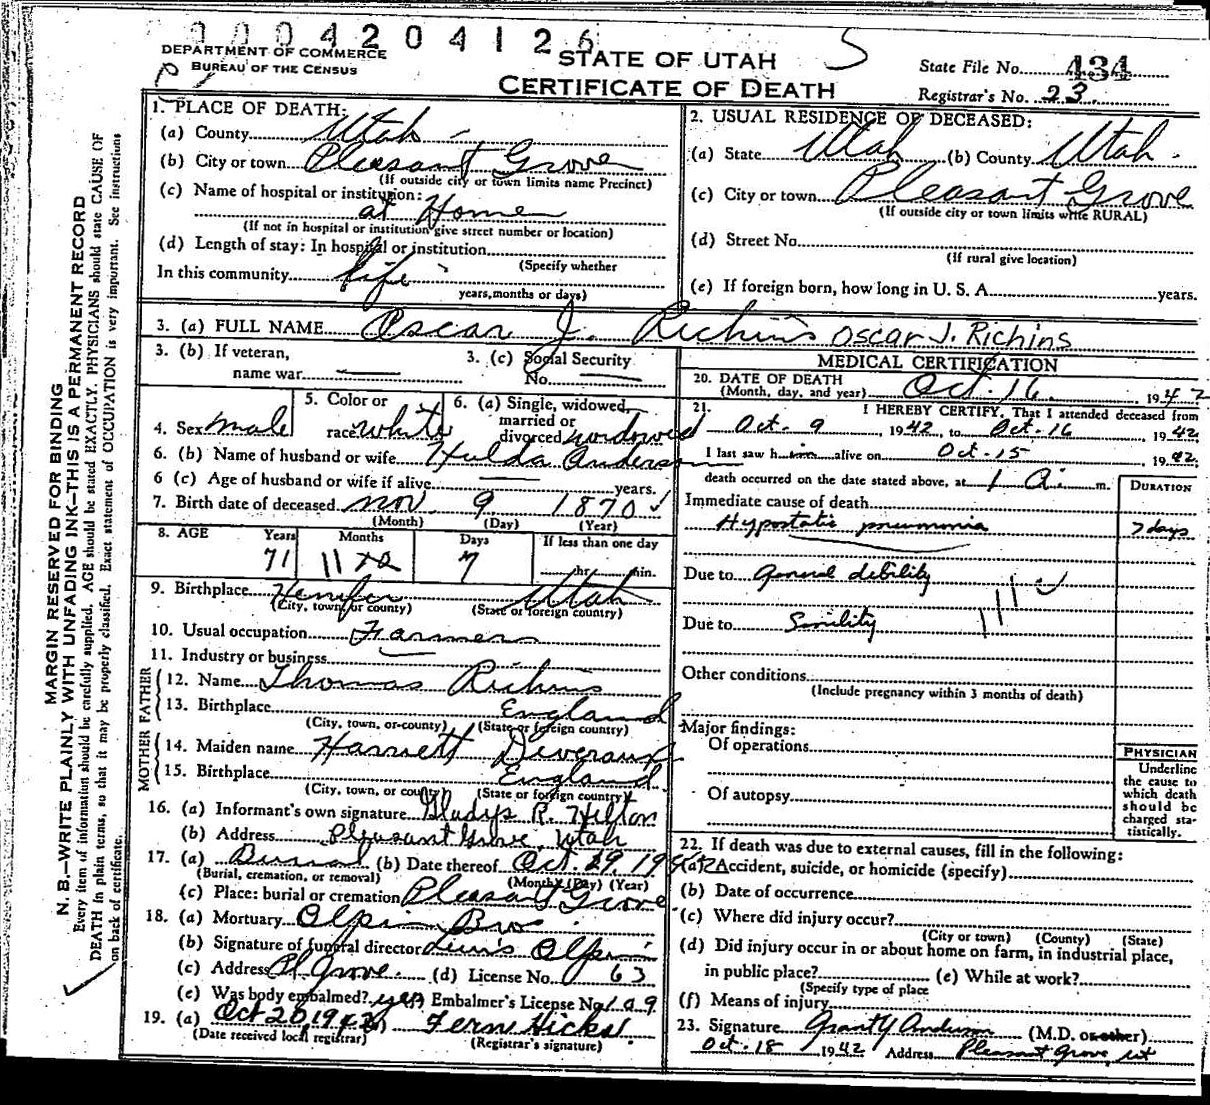 0004204126
DEPARTMENT OF COMMERCE
BUREAU OF THE CENSUS
STATE OF UTAH
CERTIFICATE OF DEATH
State File No. 434
Registrar's No. 23.
MARGIN RESERVED FOR BINDING
N. B.—WRITE PLAINLY WITH UNFADING INK—THIS IS A PERMANENT RECORD
Every item of information should be carefully supplied. AGE should be stated EXACTLY. PHYSICIANS should state CAUSE OF
DEATH in plain terms, so that it may be properly classified. Exact statement of OCCUPATION is very important. See instructions
on back of certificate.
1. PLACE OF DEATH:
(a) County Utah
(b) City or town Pleasant Grove
(If outside city or town limits name Precinct)
(c) Name of hospital or institution:
at Home
(If not in hospital or institution give street number or location)
(d) Length of stay: In hospital or institution
(Specify whether
In this community life
years, months or days)
2. USUAL RESIDENCE OF DECEASED:
(a) State Utah (b) County Utah.
(c) City or town Pleasant Grove
(If outside city or town limits write RURAL)
(d) Street No.
(If rural give location)
(e) If foreign born, how long in U. S. A. years.
3. (a) FULL NAME Oscar J. Richins Oscar J. Richins
3. (b) If veteran,
name war
3. (c) Social Security
No.
4. Sex male
5. Color or
race white
6. (a) Single, widowed,
married or
divorced widowed
6. (b) Name of husband or wife Hulda Anderson
6 (c) Age of husband or wife if alive years.
7. Birth date of deceased Nov 9 1870
(Month) (Day) (Year)
8. AGE Years Months Days If less than one day
71 11 7 hr. min.
9. Birthplace Henifer Utah
(City, town, or county) (State or foreign country)
10. Usual occupation Farmer
11. Industry or business
FATHER
12. Name Thomas Richins
13. Birthplace England
(City, town, or county) (State or foreign country)
MOTHER
14. Maiden name Harriett Deveraux
15. Birthplace England
(City, town, or county) (State or foreign country)
16. (a) Informant's own signature Gladys R. Hilton
(b) Address Pleasant Grove, Utah
17. (a) Burial (b) Date thereof Oct. 29, 1942
(Burial, cremation, or removal) (Month) (Day) (Year)
(c) Place: burial or cremation Pleasant Grove
18. (a) Mortuary Olpin Bro
(b) Signature of funeral director Olpin
(c) Address Pl Grove. (d) License No. 63
(e) Was body embalmed? yes (f) Embalmer's License No. 109
19. (a) Oct 20 1942 Fern Hicks
(Date received local registrar) (Registrar's signature)
MEDICAL CERTIFICATION
20. DATE OF DEATH
(Month, day, and year) Oct. 16. 1942
21. I HEREBY CERTIFY, That I attended deceased from
Oct. 9, 1942, to Oct. 16 1942.
I last saw him alive on Oct. 15 1942.
death occurred on the date stated above, at 1 A. m.
DURATION
Immediate cause of death
Hypostatic pneumonia 7 days
Due to General debility
Due to Senility
Other conditions
(Include pregnancy within 3 months of death)
Major findings:
Of operations
Of autopsy
PHYSICIAN
Underline
the cause to
which death
should be
charged sta-
tistically.
22. If death was due to external causes, fill in the following:
(a) Accident, suicide, or homicide (specify)
(b) Date of occurrence
(c) Where did injury occur?
(City or town) (County) (State)
(d) Did injury occur in or about home on farm, in industrial place,
in public place? (e) While at work?
(Specify type of place
(f) Means of injury
23. Signature Grant Y Anderson (M.D. or other)
Oct. 18 1942 Address Pleasant Grove, Ut